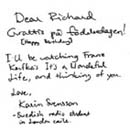 Dear Richard
Grattis på födelsedagen!
(Happy birthday)
I'll be watching Franz
Kafka's It's a Wonderful
Life, and thinking of you.
Love,
Karin Svensson
- Swedish radio student
in London exile.